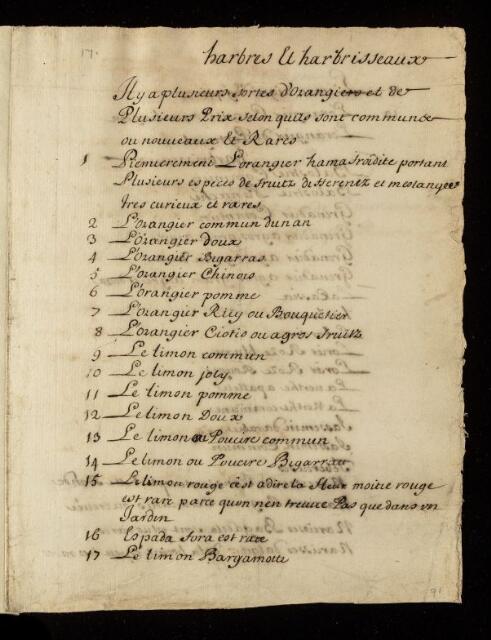 17.
harbres Et harbrisseaux
Il y a plusieurs sortes d'orangiers et de
Plusieurs Prix selon quils sont communs
ou nouveaux Et Rares
1 Premierement L'orangier hamafrodite portant
Plusieurs especes de fruitz diferentz et meslanges
tres curieux et rares
2 L'orangier commun dun an
3 L'orangier doux
4 L'orangier Bigarras
5 L'orangier Chinois
6 L'orangier pomme
7 L'orangier Riiy ou Bouquetier
8 L'orangier Ciotio ou a gros fruitz
9 Le limon commun
10 Le limon joly
11 Le limon pomme
12 Le limon Doux
13 Le limon ou Poucire commun
14 Le limon ou Poucire Bigarrat
15 Le limon rouge c'est a dire la fleur moitie rouge
est rare parce quon n'en treuve Pas que dans un
Jardin
16 Espada fora est rare
17 Le limon Bargamotte
91